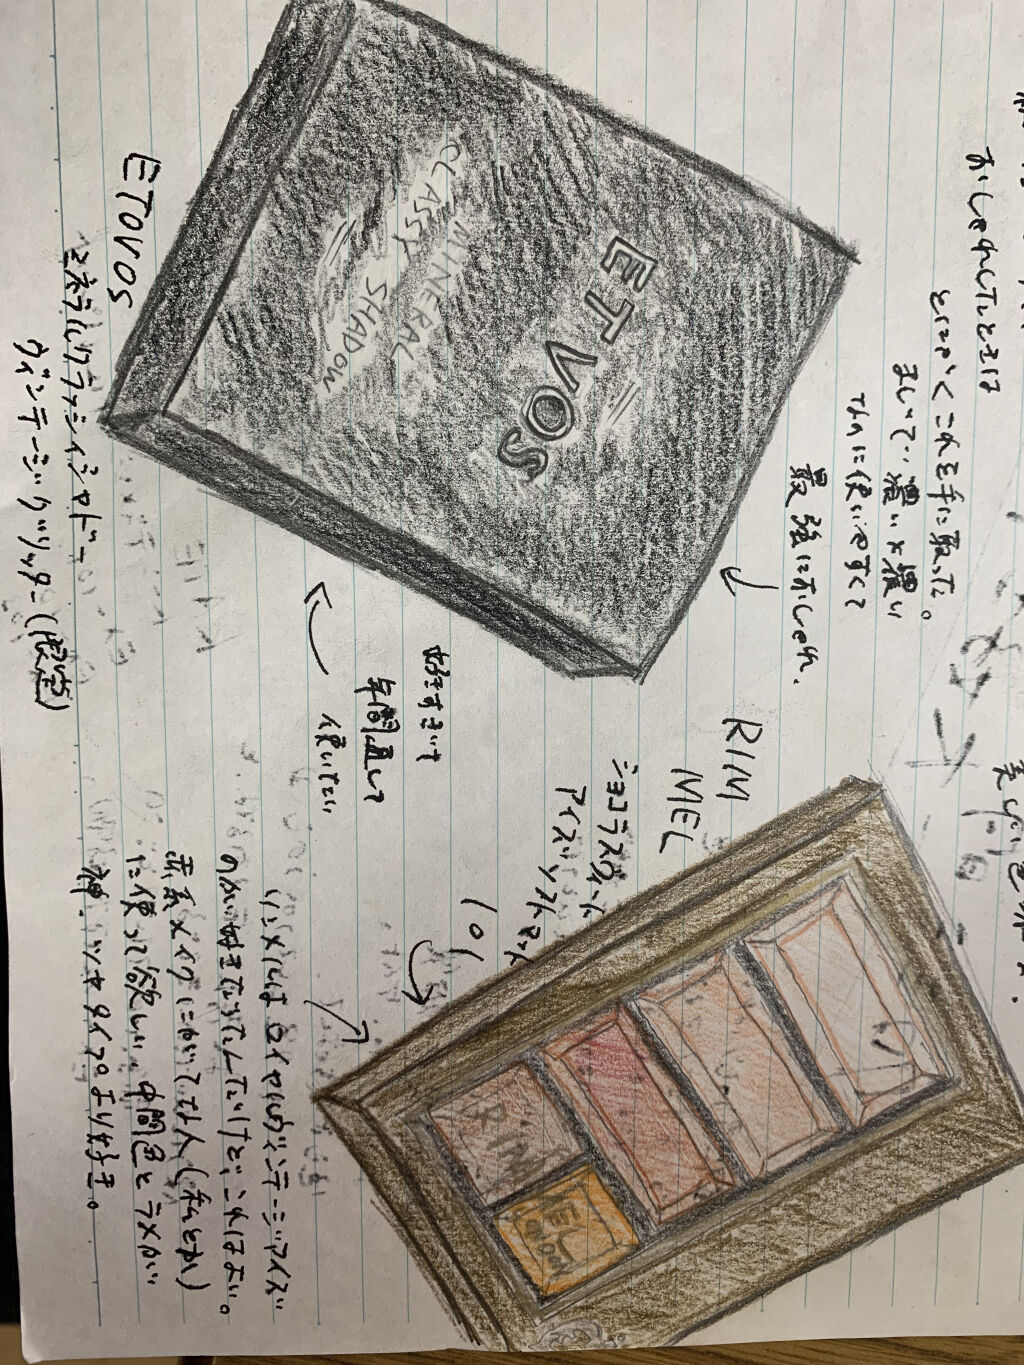 おしゃれしてしときは
とにかくこれを手に取った。
まじで、濃い×濃い
てんに使いやすくて
最強におしゃれ。
ETVOS
MINERAL
CLASSY SHADOW
ETVOS
ミネラルクラッシィシャドー
ヴィンテージクバリッタ- (限定)
好きすぎて
年間通して
使いたい
RIM
MEL
ショコラスウィート
アイズ ソフトマット
101
RIM
MEL
LONDON
リンメルはロイヤルヴィンテージアイズ
のが好きだったんだけど、これはよい。
赤系メイクにがいてる人(私とか)
に使って欲しい。中間色とラメがい
神。ツヤタイプより好き。